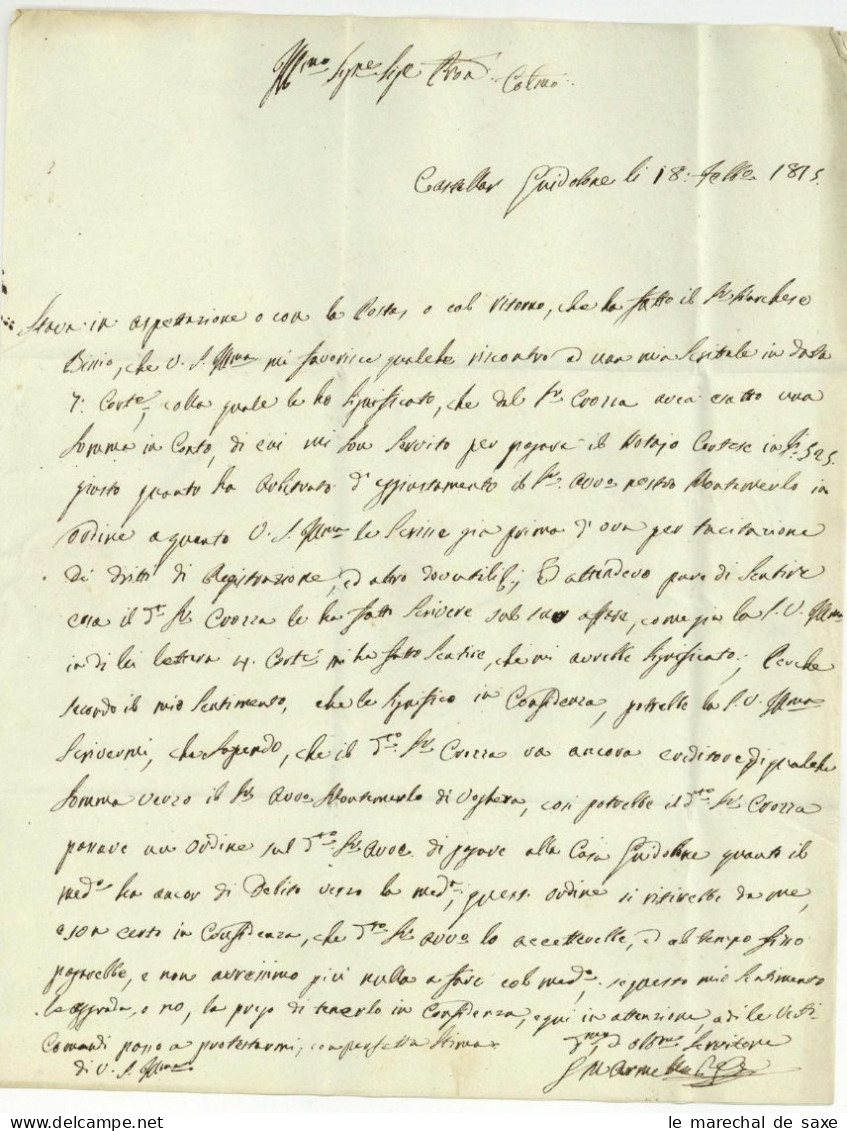 Ill.mo Sig.re Sig.e Pron Col.mo
Castellar Guidobono li 18. Febb.o 1815.
Stava in aspettazione o con la Posta, o col ritorno, che ha fatto il Sr. Marchese
che V. S. Ill.ma mi favorisca qualche riscontro ad una mia Scrittale in data
7. Corte., colla quale le ho significato, che dal Sr. Crozza avea esatto una
Somma in Conto, di cui mi son Servito per pagare il Notajo Cortese in 525.
giusto quanto ha arbitrato d'aggiustamento il Sr. Avvo. nostro Montemerlo in
ordine a quanto V. S. Ill.ma le Scrisse già prima d'ora per tacitazione
di dritti di Registrazione, ed altro ; Ed attendevo pure di Sentire
cosa il do. Sr. Crozza le ha fatto Scrivere sul suo affare, come già la S. V. Ill.ma
in di lei lettera 4. Corte. mi ha fatto Sentire, che mi avrebbe significato; Perche
secondo il mio Sentimento, che le significo in Confidenza, potrebbe la S. V. Ill.ma
Scrivermi, che sapendo, che il d.to Sr. Crozza va ancora creditore di qualche
Somma verso il Sr. Avvo. Montemerlo di Voghera, così potrebbe il d.to Sr. Crozza
passare un ordine sul d.to Sr. Avvo. di pagare alla Casa Guidobono quanto il
med.o ha ancor di Debito verso la med.a; quest'ordine si ritirebbe da me,
e son certo in Confidenza, che d.to Sr. Avvo. lo accetterebbe, ed al tempo fisso
pagarebbe, e non avressimo più nulla a fare col med.o. se questo mio Sentimento
le aggrada, o no, la prego di tenerlo in Confidenza, e qui in attenzione, a di le
Comandi passo a protestarmi, con perfetta Stima
di V. S. Ill.ma
ed obb.mo Servitore